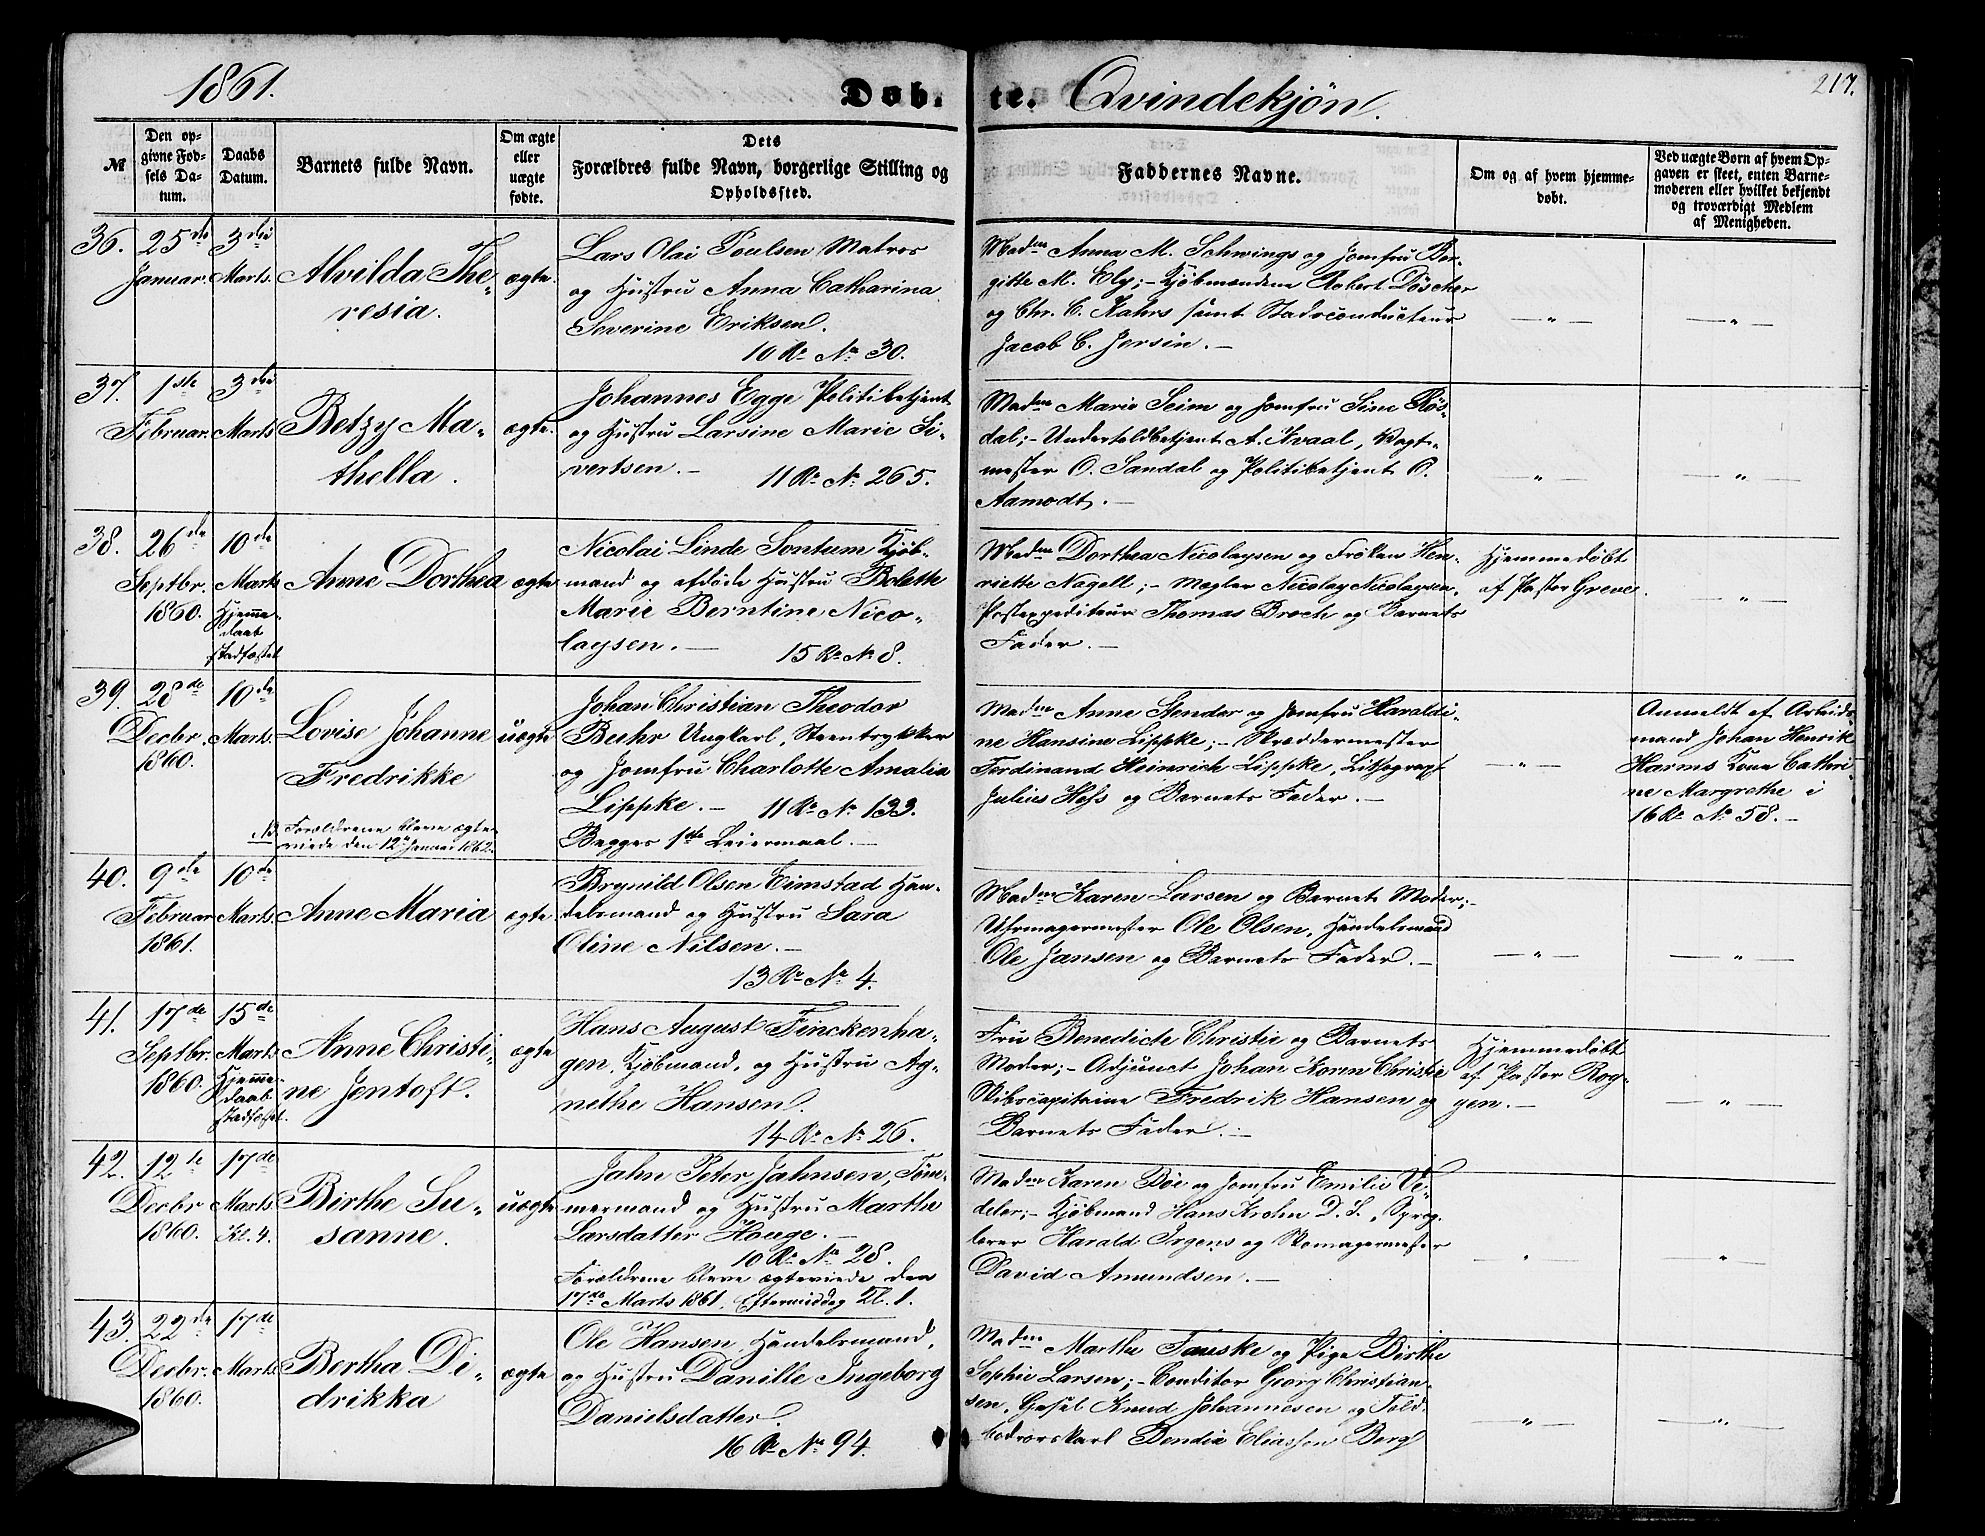 1861.
Døbte. Qvindekjøn.
217.
№
Den op-
givne Fød-
sels Da-
tum.
Daabs
Datum.
Barnets fulde Navn.
Om ægte
eller
uægte
fødte.
Dets
Forældres fulde Navn, borgerlige Stilling og
Opholdssted.
Faddernes Navne.
Om og af hvem hjemme-
døbt.
Ved uægte Børn af hvem Op-
gaven er skeet, enten Barne-
moderen eller hvilket bekjendt
og troværdigt Medlem
af Menigheden.
36.
25de
Januar.
3die
Marts.
Alvilda The-
resia.
ægte.
Lars Olai Poulsen Matros
og Hustru Anna Catharina
Severine Eriksen.
10 R. No 30.
Madme Anna M. Schwings og Jomfru Ber-
gitte M. Ely; - Kjøbmændene Robert Döscher
og Chr. C. Kahrs samt Stadsconducteur
Jacob C. Jersin. -
— " —
— " —
37.
1ste
Februar.
3die
Marts
Betzy Ma-
thella.
ægte.
Johannes Egge Politibetjent
og Hustru Larsine Marie Si-
vertsen. -
11 R. No 265.
Madme Marie Seim og Jomfru Sine Røs-
dal; - Undertoldbetjent A. Kvaal, Vagt-
mester O. Sandal og Politibetjent O.
Aamodt. -
— " —
— " —
38.
26de
Septbr.
1860.
10de
Marts
Hjemme-
daab
stadfæstet
Anne Dorthea
ægte
Nicolai Linde Sontum Kjøb-
mand og afdøde Hustru Bolette
Marie Berntine Nico-
laysen. -
15 R. No 8.
Madme Dorthea Nicolaysen og Frøken Hen-
riette Nagell; - Megler Nicolay Nicolaysen,
Postexpediteur Thomas Broch og Barnets
Fader. -
Hjemmedøbt
af Pastor Greve.
— " —
39.
28de
Decbr.
1860.
10de
Marts.
Lovise Johanne
Fredrikke
Forældrene bleve ægte-
viede den 12te Januar 1862.
uægte
Johan Christian Theodor
Buhr Ungkarl, Steentrykker
og Jomfru Charlotte Amalia
Lippke. -
11 R. No 133.
Begges 1ste Leiermaal. -
Madme Anne Stender og Jomfru Haraldi-
ne Hansine Lippke; - Skræddermester
Ferdinand Heinrich Lippke, Lithograph
Julius Hess og Barnets Fader. -
— " —
Anmeldt af Arbeids-
mand Johan Henrik
Harms Kone Cathri-
ne Margrethe i
16 R. No 58. -
40.
9de
Februar
1861.
10de
Marts.
Anne Maria
ægte
Brynild Olsen Eimstad Han-
delsmand og Hustru Sara
Oline Nilsen. -
13 R. No 4.
Madme Karen Larsen og Barnets Moder; -
Uhrmagermester Ole Olsen, Handelsmand
Ole Jansen og Barnets Fader. -
— " —
— " —
41.
17de
Septbr.
1860.
15de
Marts.
Hjemme-
daab
stadfæstet.
Anne Christi-
ne Jentoft.
ægte
Hans August Finckenha-
gen, Kjøbmand, og Hustru Ag-
nethe Hansen.
14 R. No 26.
Fru Benedicte Christie og Barnets
Moder; - Adjunct Johan Koren Christie
Skibscapitaine Fredrik Hansen og
Barnets Fader. -
Hjemmedøbt
af Pastor Rog-
gen. -
— " —
42.
12te
Decbr
1860.
17de
Marts.
Kl. 4.
Birthe Su-
sanne.
uægte
Jahn Peter Jahnsen, Tøm-
mermand og Hustru Marthe
Larsdatter Hauge. -
10 R. No 28.
Forældrene bleve ægteviede den
17de Marts 1861. Eftermiddag Kl. 1.
Madme Karen Bøe og Jomfru Emilie Vi-
deler; - Kjøbmand Hans Krohn D. S., Sprog-
lærer Harald Irgens og Skomagermester
David Amundsen. -
"
"
43.
22de
Decbr.
1860.
17de
Marts.
Bertha Di-
drikka
ægte
Ole Hansen Handelsmand,
og Hustru Danille Ingeborg
Danielsdatter.
16 R. No 94.
Madme Marthe Fauske og Pige Birthe
Sophie Larsen; - Conditor Georg Christian-
sen, Gesel Knud Johannesen og Told-
bodrorskarl Bendix Eliassen Berg
— " —
— " —